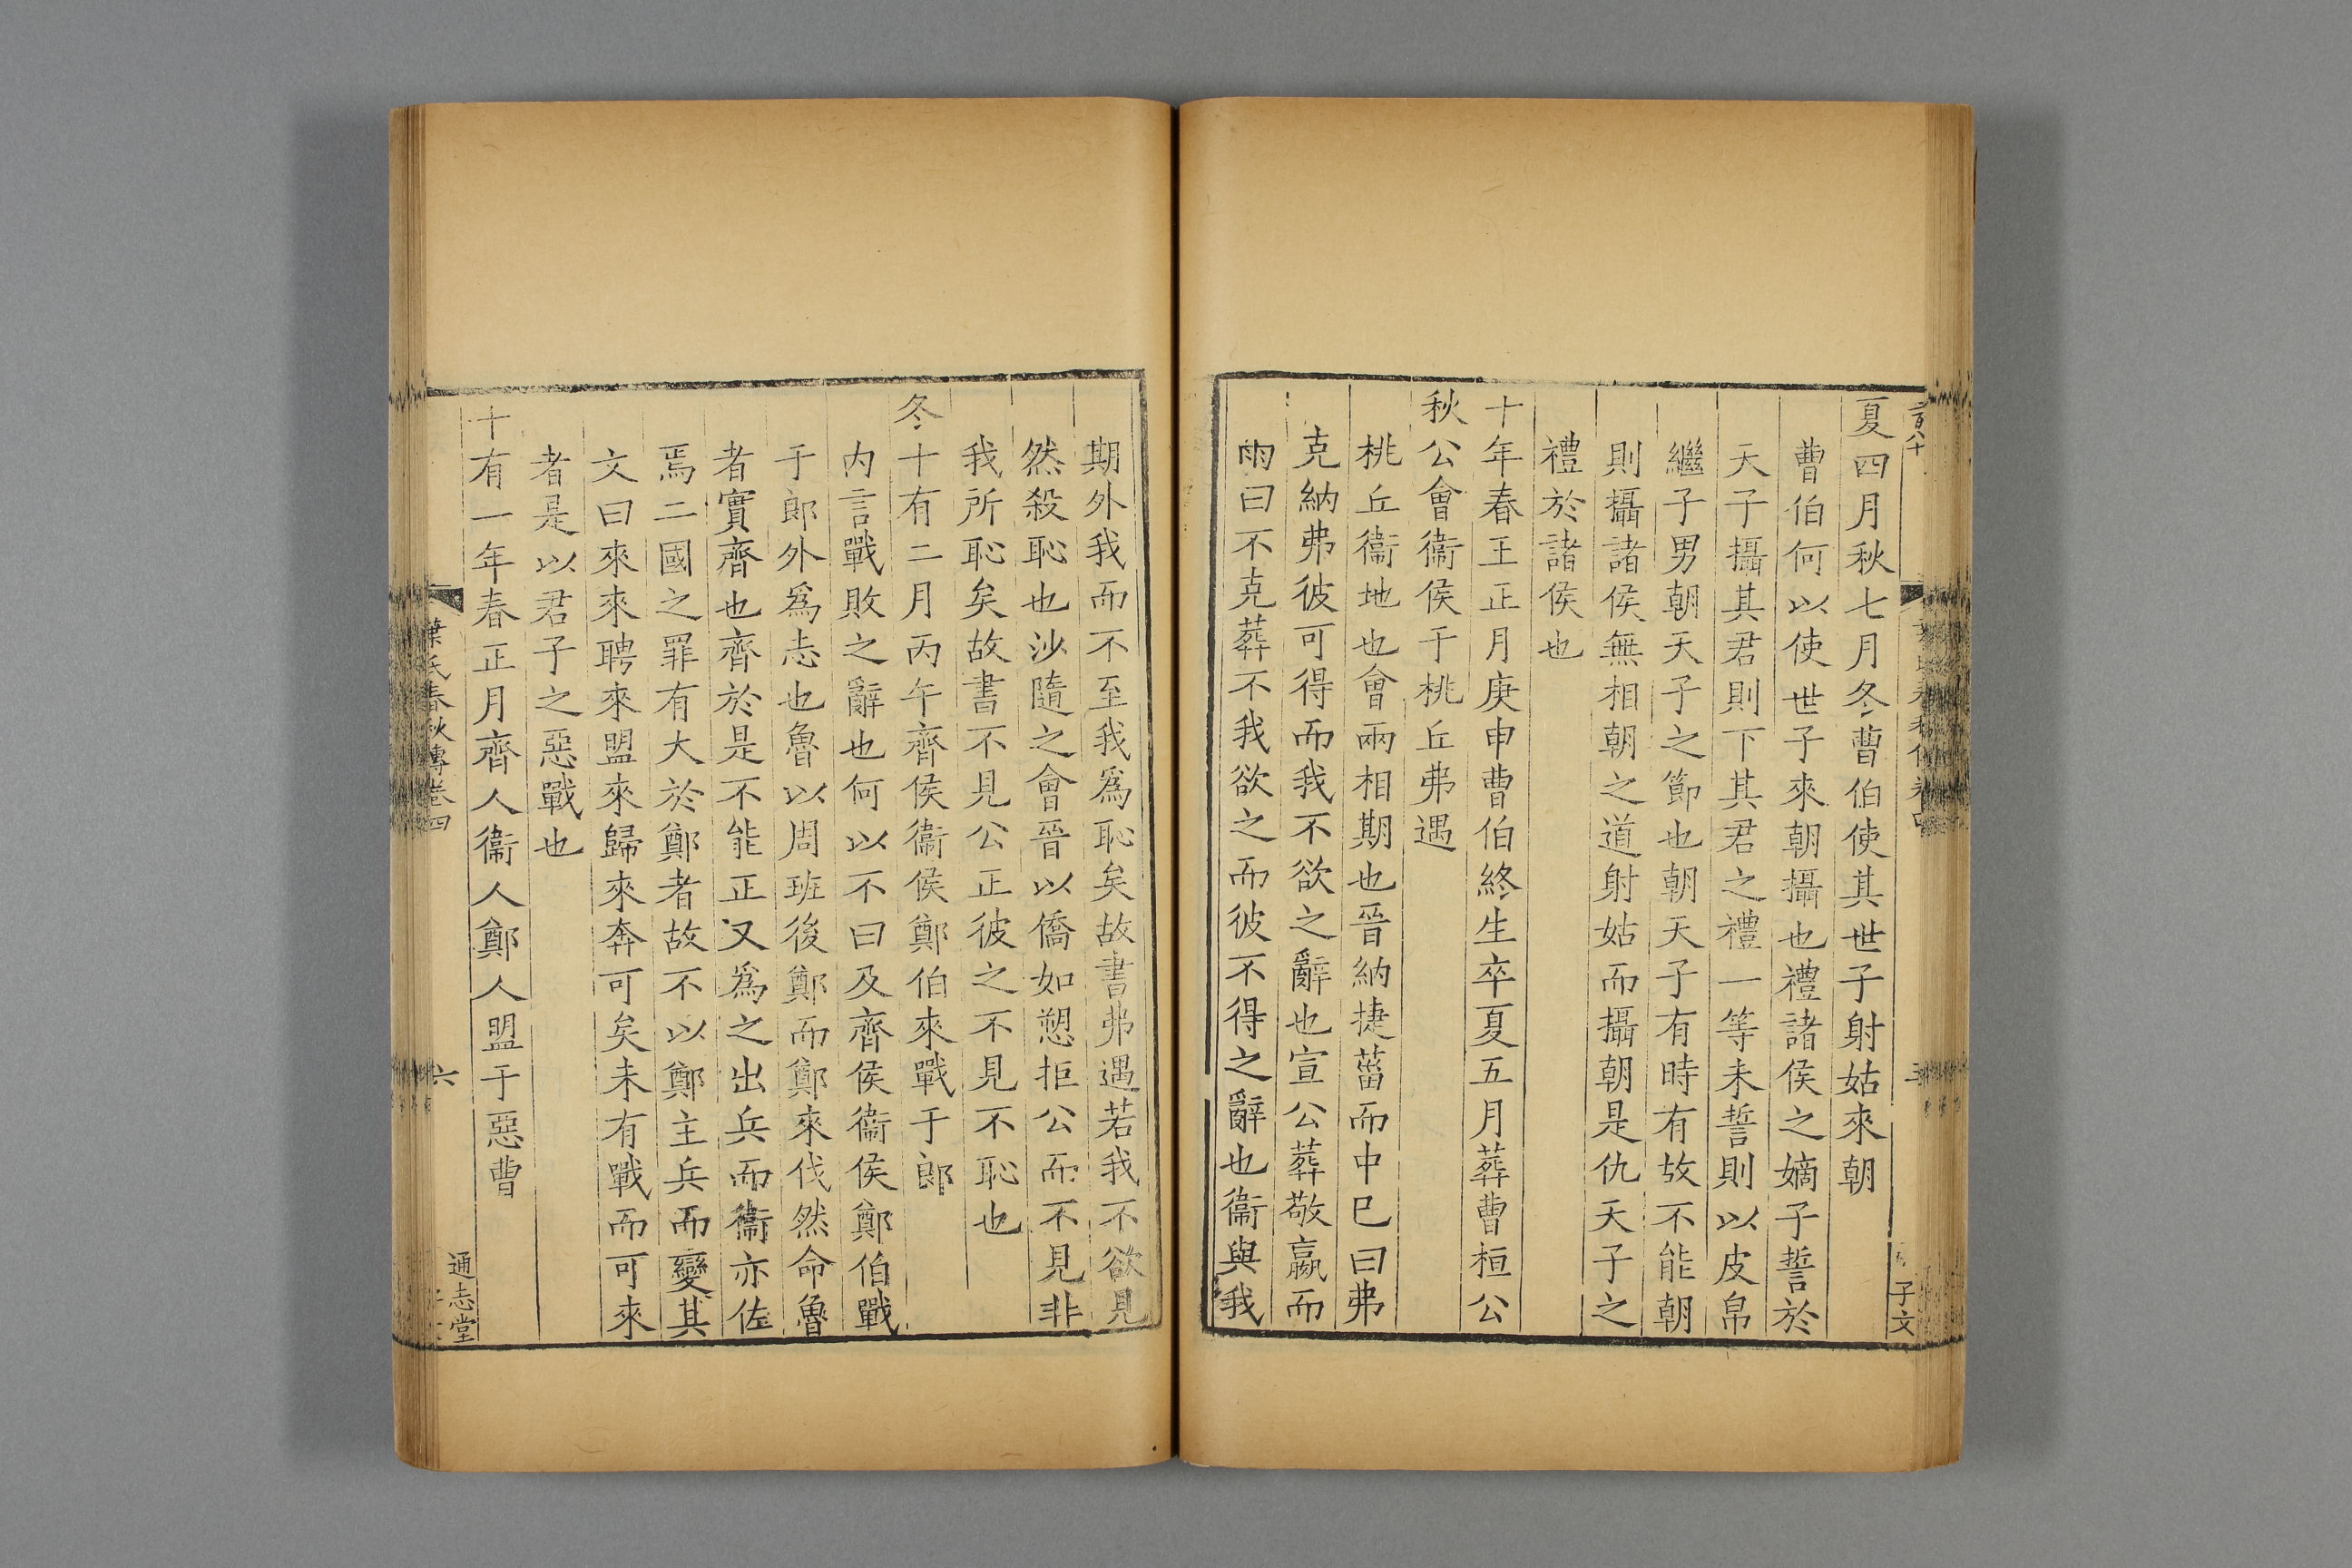 夏四月秋七月冬曹伯使其世子射姑來朝
曹伯何以使世子來朝攝也禮諸侯之嫡子誓於
天子攝其君則下其君之禮一等未誓則以皮帛
繼子男朝天子之節也朝天子有時有故不能朝
則攝諸侯無相朝之道射姑而攝朝是仇天子之
禮於諸侯也
十年春王正月庚申曹伯終生卒夏五月葬曹桓公
秋公會衞侯于桃丘弗遇
桃丘衞地也會兩相期也晉納捷菑而中已曰弗
克納弗彼可得而我不欲之辭也宣公葬敬嬴而
雨曰不克葬不我欲之而彼不得之辭也衞與我
期外我而不至我爲恥矣故書弗遇若我不欲見
然殺恥也沙隨之會晉以僑如愬拒公而不見非
我所恥矣故書不見公正彼之不見不恥也
冬十有二月丙午齊侯衞侯鄭伯來戰于郎
内言戰敗之辭也何以不曰及齊侯衞侯鄭伯戰
于郎外爲志也魯以周班後鄭而鄭來伐然命魯
者實齊也齊於是不能正又爲之出兵而衞亦佐
焉二國之罪有大於鄭者故不以鄭主兵而變其
文曰來來聘來盟來歸來奔可矣未有戰而可來
者是以君子之惡戰也
十有一年春正月齊人衞人鄭人盟于惡曹
葉氏春秋傳卷四
六
通志堂
子文